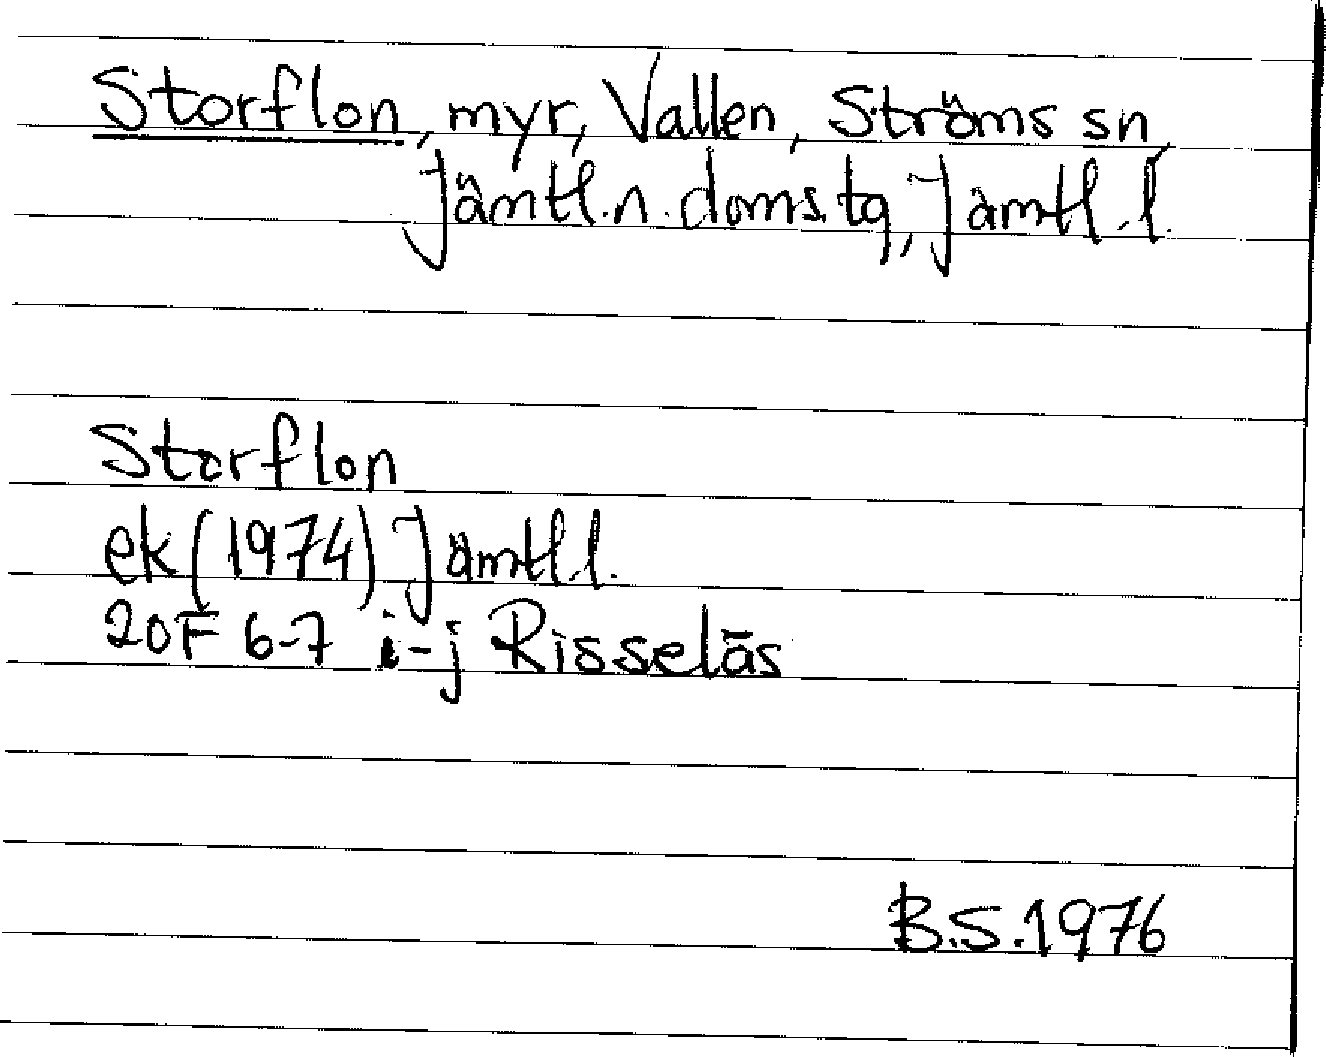 Storflon, myr, Vallen, Ströms sn,
Jämtl.n.doms.tg, Jämtl.l.
Storflon
ek (1974) Jämtl.l.
20F 6-7 i-j Risselås
B.S.1976